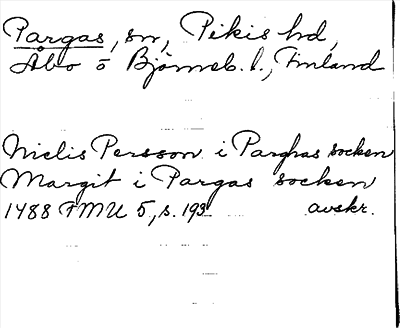 Pargas, sn, Pikis hd,
Åbo o Björneb. l., Finland
Nielis Persson i Parghas socken
Margit i Pargas socken
1488 FMU 5, s. 193 avskr.